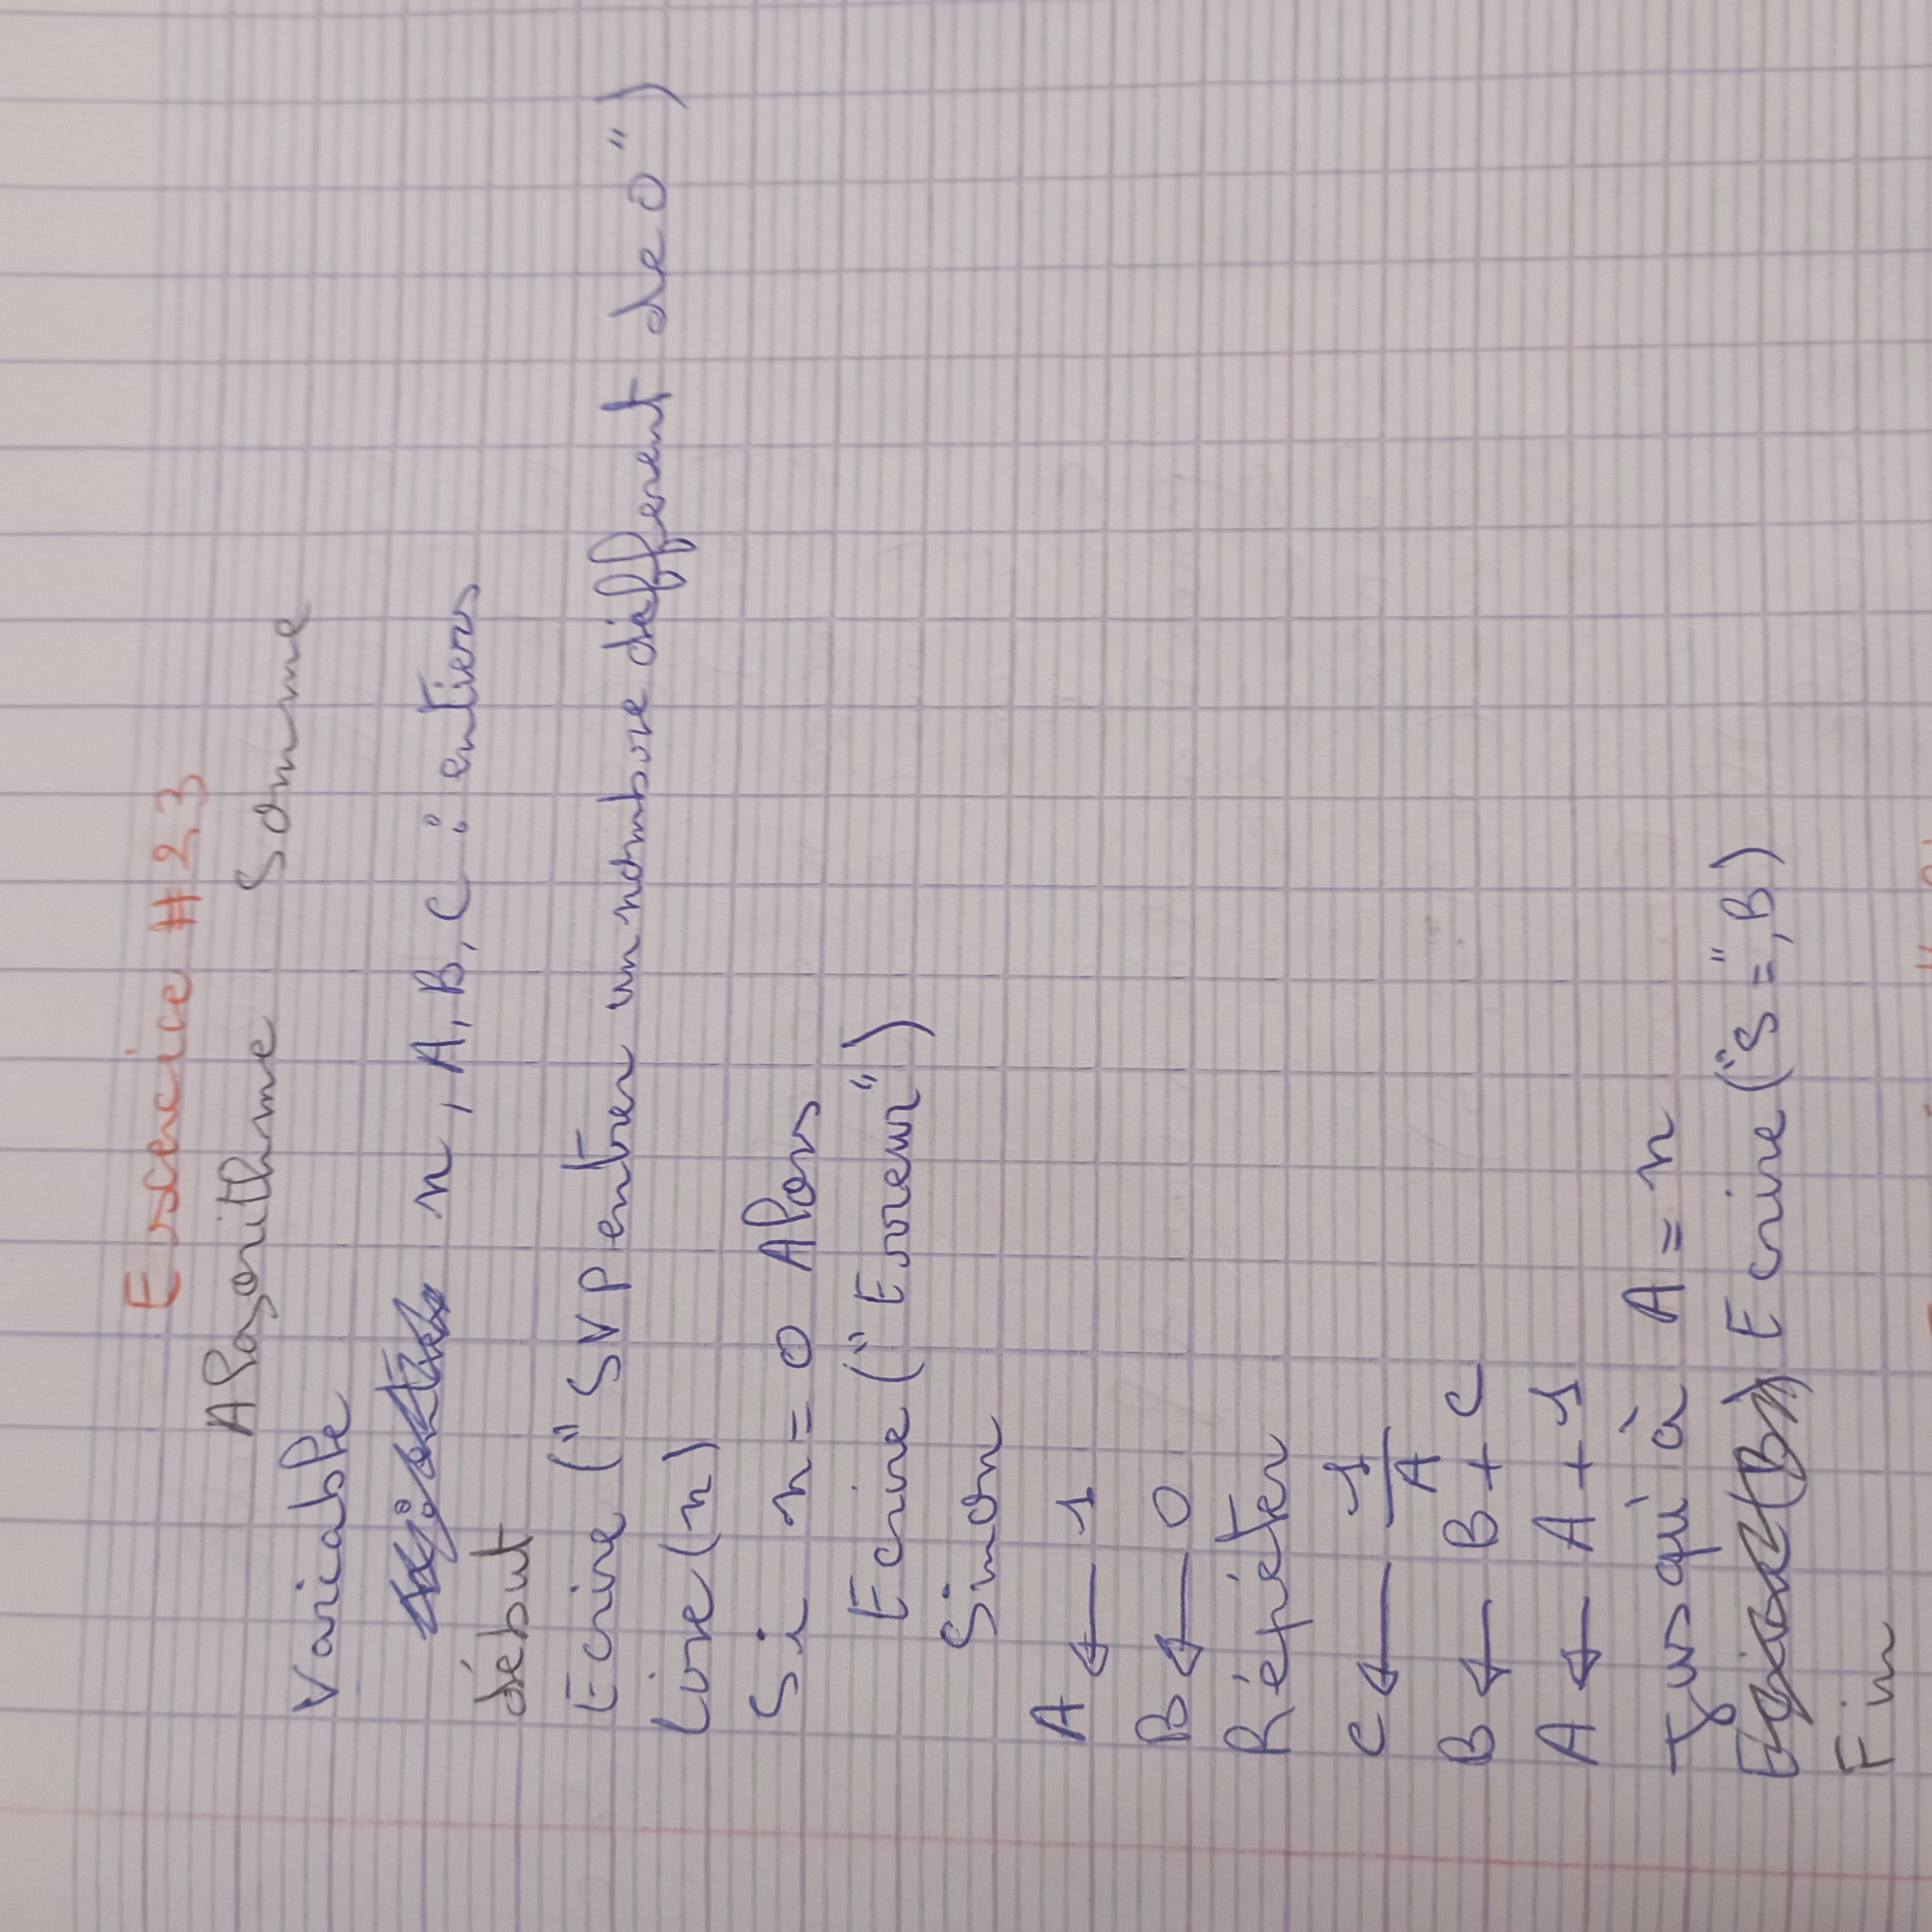 Exercice #23
Algorithme Somme
Variable
n, A, B, C : entiers
début
Ecrire ("SVP entrer un nombre différent de 0")
Lire(n)
Si n = 0 Alors
Ecrire ("Erreur")
Sinon
A ← 1
B ← 0
Répéter
C ← 1/A
B ← B + C
A ← A + 1
Jusqu'à A = n
Ecrire ("S=", B)
Fin